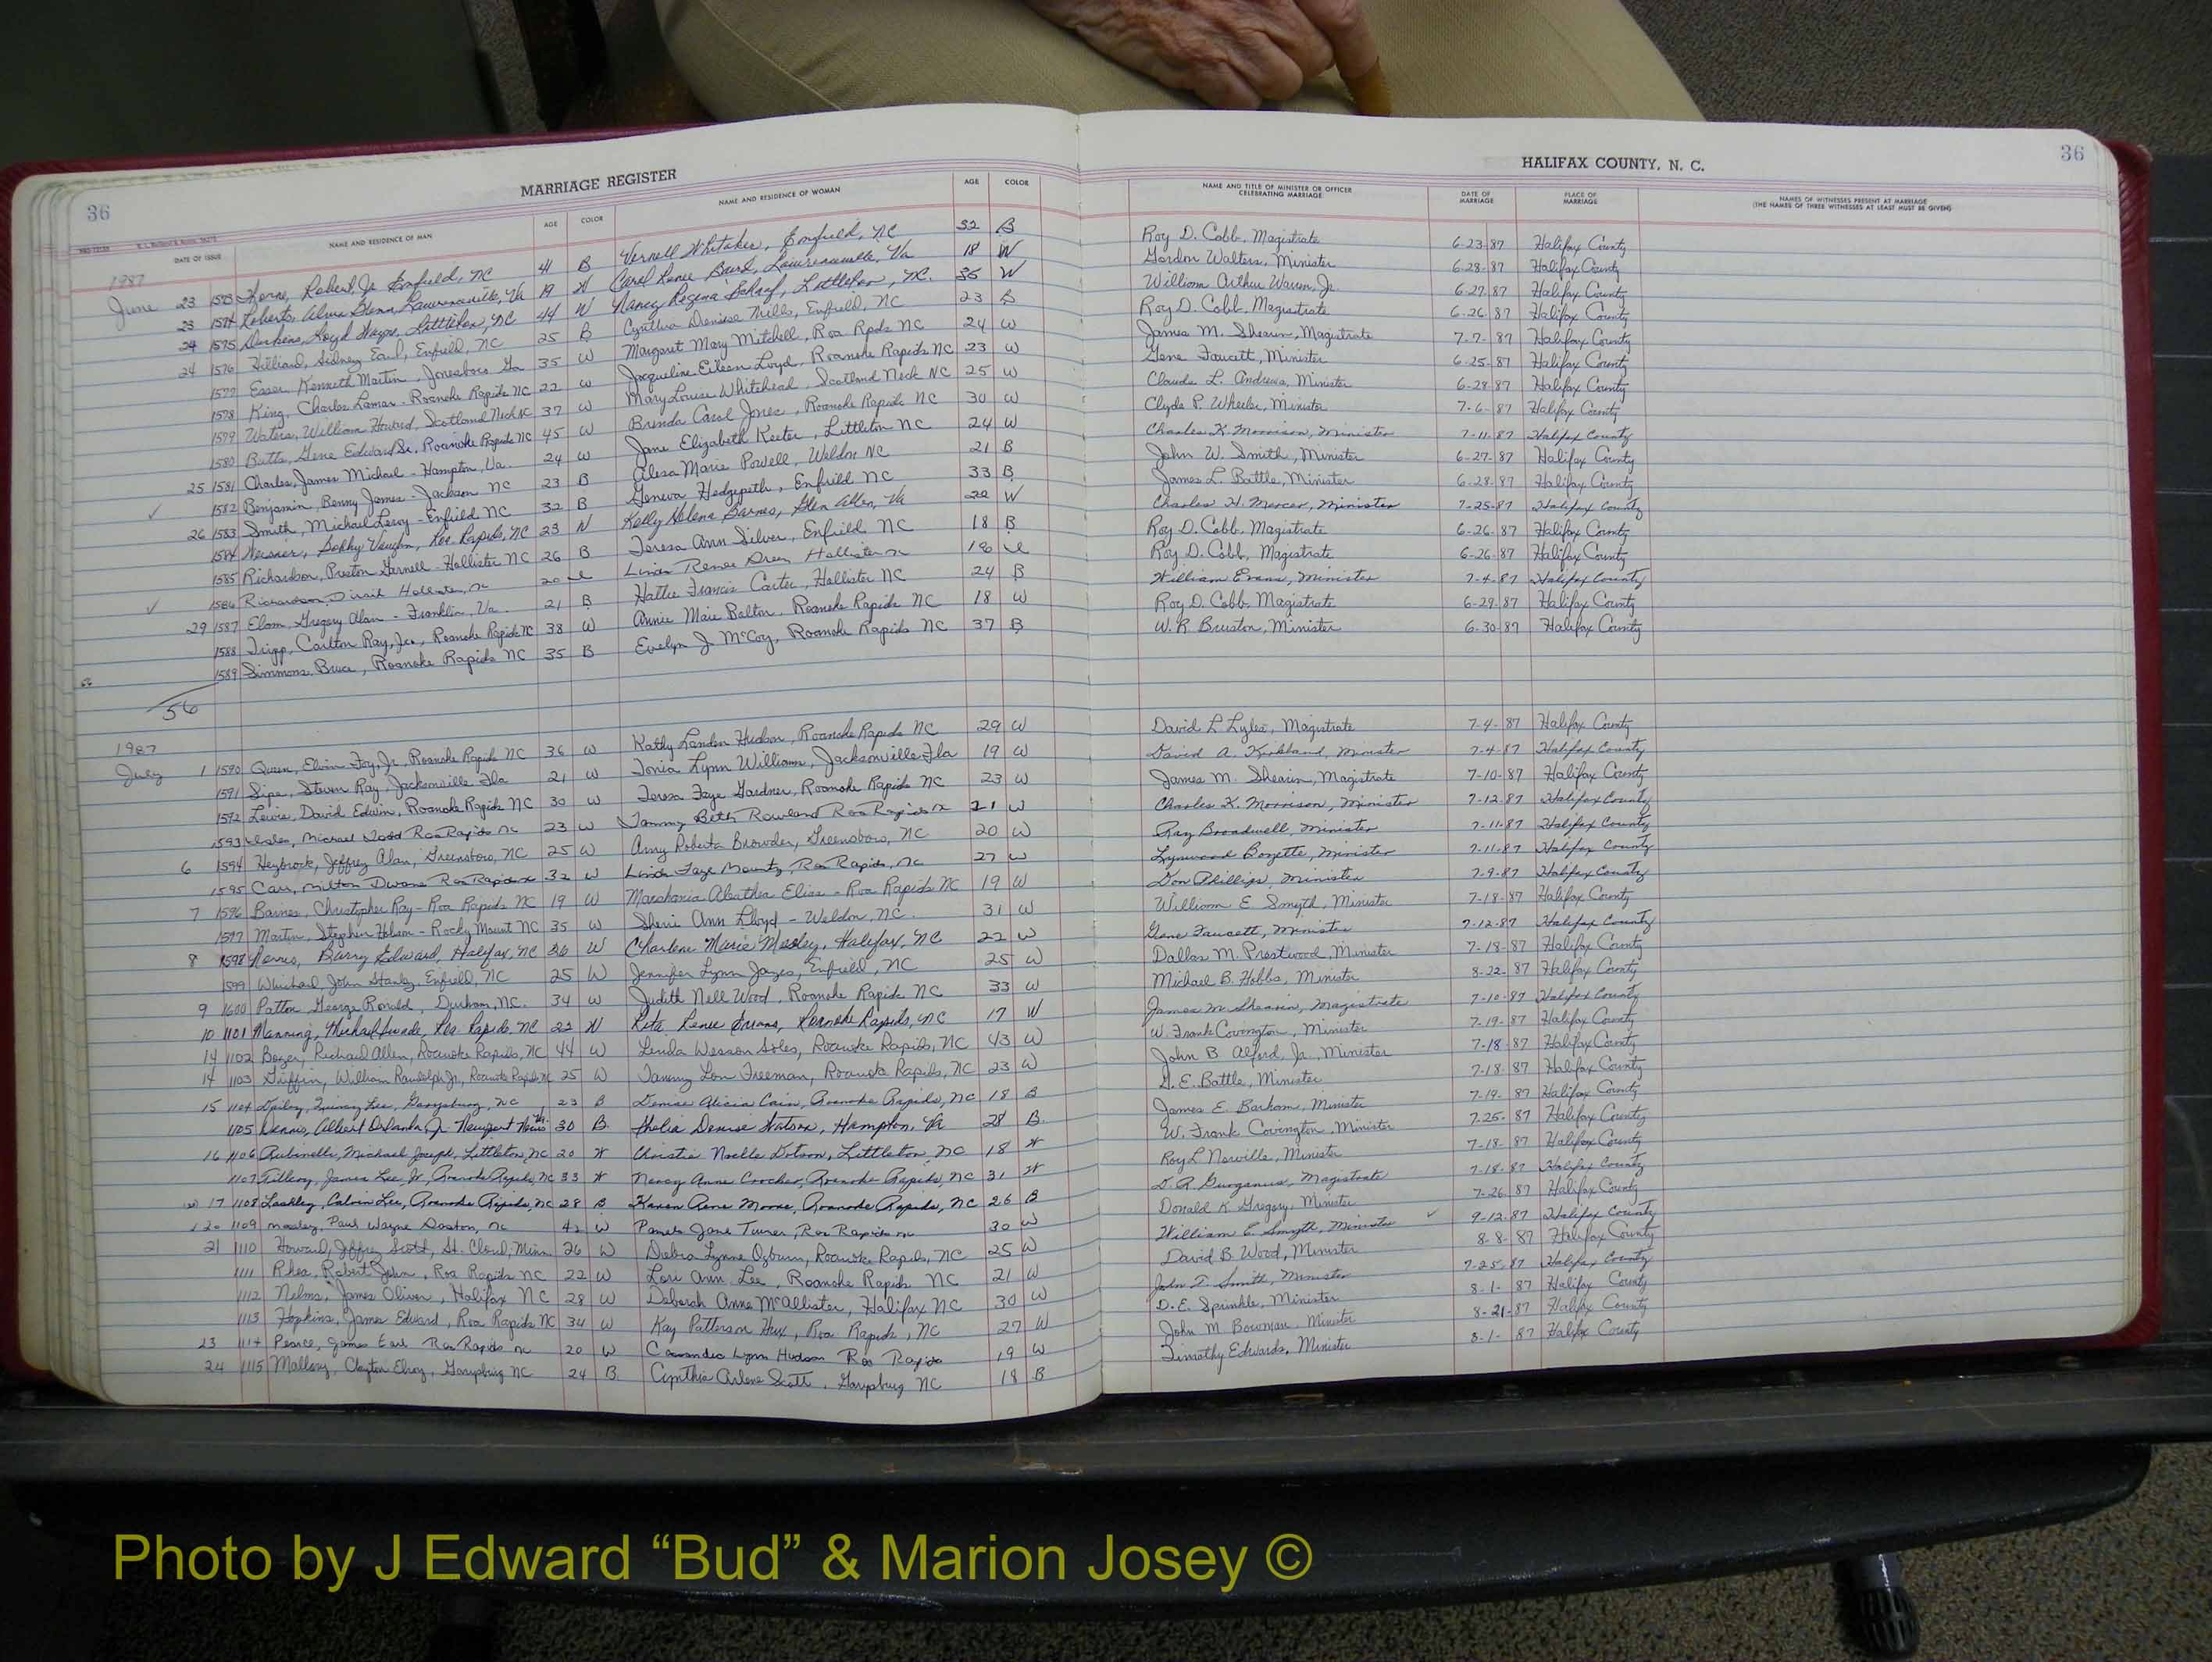 36
MARRIAGE REGISTER
HALIFAX COUNTY, N. C.
36
DATE OF ISSUE NAME AND RESIDENCE OF MAN AGE COLOR NAME AND RESIDENCE OF WOMAN AGE COLOR NAME AND TITLE OF MINISTER OR OFFICER CELEBRATING MARRIAGE DATE OF MARRIAGE PLACE OF MARRIAGE NAMES OF WITNESSES PRESENT AT MARRIAGE (THE NAMES OF THREE WITNESSES AT LEAST MUST BE GIVEN)
1987
June 23 1573 Robert Jr. Enfield, NC 41 B Vernell Whitaker, Enfield, NC 32 B Roy D. Cobb, Magistrate 6-23-87 Halifax County
23 1574 Roberts, Glenn, Lawrenceville, Va 19 W Carol Renee Baird, Lawrenceville, Va 18 W Gordon Walters, Minister 6-28-87 Halifax County
24 1575 Loyd Littleton, NC 44 W Nancy Regina Littleton, NC. 35 W William Arthur Warren, Jr. 6-27-87 Halifax County
24 1576 Hilliard, Sidney Earl, Enfield, NC 25 B Cynthia Denise Mills, Enfield, NC 23 B Roy D. Cobb, Magistrate 6-26-87 Halifax County
1577 Esser, Kenneth Martin, Jonesboro Ga 35 W Margaret Mary Mitchell, Roa Rpds NC 24 W James M. Shearin, Magistrate 7-7-87 Halifax County
1578 King, Charles Lamar - Roanoke Rapids NC 22 W Jacqueline Eileen Loyd, Roanoke Rapids NC 23 W Gene Faucett, Minister 6-25-87 Halifax County
1579 Waters, William Howard, Scotland Neck NC 37 W Mary Louise Whitehead, Scotland Neck NC 25 W Claude L. Andrews, Minister 6-28-87 Halifax County
1580 Butts, Gene Edward Sr. Roanoke Rapids NC 45 W Brenda Carol Jones, Roanoke Rapids NC 30 W Clyde P. Wheeler, Minister 7-6-87 Halifax County
25 1581 Charles, James Michael - Hampton, Va. 24 W Jane Elizabeth Keeter, Littleton NC 24 W Charles K. Morrison, Minister 7-11-87 Halifax County
1582 Benjamin, Benny James - Jackson NC 23 B Alesa Marie Powell, Weldon NC 21 B John W. Smith, Minister 6-27-87 Halifax County
26 1583 Smith, Michael Leroy - Enfield NC 32 B Geneva Hedgepeth, Enfield NC 33 B James L. Battle, Minister 6-28-87 Halifax County
1584 Bobby Vaughn, Roa Rapids, NC 23 W Kelly Helena Barnes, Glen Allen, Va 22 W Charles H. Mercer, Minister 7-25-87 Halifax County
1585 Richardson, Preston Garnell - Hollister NC 26 B Teresa Ann Silver, Enfield NC 18 B Roy D. Cobb, Magistrate 6-26-87 Halifax County
1586 Richardson, Hollister, nc 20 Linda Renee Hollister nc 18 Roy D. Cobb, Magistrate 6-26-87 Halifax County
29 1587 Elam, Gregory Alan - Franklin, Va. 21 B Hattie Francis Carter, Hollister NC 24 B William Evans, Minister 7-4-87 Halifax County
1588 Tripp, Carlton Ray, Jr., Roanoke Rapids NC 38 W Annie Marie Roanoke Rapids NC 18 W Roy D. Cobb, Magistrate 6-29-87 Halifax County
1589 Simmons, Bruce, Roanoke Rapids NC 35 B Evelyn J. McCoy, Roanoke Rapids NC 37 B W. R. Minister 6-30-87 Halifax County
56
1987
July 1 1590 Queen, Jr., Roanoke Rapids NC 36 W Kathy Landon Hudson, Roanoke Rapids NC 29 W David L Lyles, Magistrate 7-4-87 Halifax County
1591 Sipe, Steven Ray, Jacksonville Fla 21 W Tonia Lynn Williams, Jacksonville Fla 19 W David A. Kirkland, Minister 7-4-87 Halifax County
1592 Lewis, David Edwin, Roanoke Rapids NC 30 W Teresa Faye Gardner, Roanoke Rapids NC 23 W James M. Shearin, Magistrate 7-10-87 Halifax County
1593 Michael Todd Roa Rapids nc 23 W Tammy Beth Rowland Roa Rapids nc 21 W Charles K. Morrison, Minister 7-12-87 Halifax County
6 1594 Heybrock, Jeffrey Alan, Greensboro, NC 25 W Amy Roberta Browder, Greensboro, NC 20 W Ray Broadwell, Minister 7-11-87 Halifax County
1595 Carr, Milton Dwane Roa Rapids nc 32 W Linda Faye Mountz, Roa Rapids, nc 27 W Lynwood Minister 7-11-87 Halifax County
7 1596 Barnes, Christopher Ray - Roa Rapids NC 19 W Roa Rapids NC 19 W Don Phillips, Minister 7-9-87 Halifax County
1597 Martin, Stephen - Rocky Mount NC 35 W Sheri Ann Floyd - Weldon, NC. 31 W William E. Smyth, Minister 7-18-87 Halifax County
8 1598 Barry Edward, Halifax, NC 26 W Charlene Marie Halifax, NC 22 W Gene Faucett, Minister 7-12-87 Halifax County
1599 Whichard, John Stanley, Enfield, NC 25 W Jennifer Lynn Enfield, NC 25 W Dallas M. Prestwood, Minister 7-18-87 Halifax County
9 1600 Patton, George Ronald, Durham, NC. 34 W Judith Nell Wood, Roanoke Rapids NC 33 W Michael B. Hobbs, Minister 8-22-87 Halifax County
10 1101 Manning, Michael Roa Rapids, NC 22 W Rita Renee Evans, Roanoke Rapids, NC 17 W James M Shearin, Magistrate 7-10-87 Halifax County
14 1102 Richard Allen, Roanoke Rapids, NC 44 W Linda Roanoke Rapids, NC 43 W W. Frank Covington, Minister 7-19-87 Halifax County
14 1103 Griffin, William Randolph Jr, Roanoke Rapids NC 25 W Tammy Lou Freeman, Roanoke Rapids, NC 23 W John B. Alford, Jr., Minister 7-18-87 Halifax County
15 1104 Lee, Garysburg, NC 23 B Denise Alicia Cain, Roanoke Rapids, NC 18 B G. E. Battle, Minister 7-18-87 Halifax County
1105 Dennis, Albert Jr. Newport News Va 30 B. Denise Hampton, Va 28 B. James E. Barham, Minister 7-19-87 Halifax County
16 1106 Michael Joseph, Littleton, NC 20 W Christie Noelle Dotson, Littleton, NC 18 W W. Frank Covington, Minister 7-25-87 Halifax County
1107 Tillery, James Lee, Jr, Roanoke Rapids, NC 33 W Nancy Anne Roanoke Rapids, NC 31 W Roy L. Norville, Minister 7-18-87 Halifax County
17 1108 Lashley, Calvin Lee, Roanoke Rapids, NC 28 B Karen Rene Moore, Roanoke Rapids, NC 26 B D. R. Magistrate 7-18-87 Halifax County
20 1109 Mosley, Paul Wayne nc 42 W Pamela Jane Turner, Roa Rapids nc 30 W Donald K Gregory, Minister 7-26-87 Halifax County
21 1110 Howard, Jeffrey Scott, St. Cloud, Minn 26 W Debra Lynne Ogburn, Roanoke Rapids, NC 25 W William E. Smyth, Minister 9-12-87 Halifax County
1111 Rhea, Robert John, Roa Rapids NC 22 W Lori Ann Lee, Roanoke Rapids NC 21 W David B. Wood, Minister 8-8-87 Halifax County
1112 Nelms, James Oliver, Halifax NC 28 W Deborah Anne McAllister, Halifax NC 30 W John T. Smith, Minister 7-25-87 Halifax County
1113 Hopkins, James Edward, Roa Rapids NC 34 W Kay Patterson Hux, Roa Rapids, NC 27 W D. E. Sprinkle, Minister 8-1-87 Halifax County
23 1114 Pearce, James Earl Roa Rapids nc 20 W Lynn Hudson Roa Rapids 19 W John M. Bowman, Minister 8-21-87 Halifax County
24 1115 Mallory, Clayton Elroy, Garysburg NC 24 B. Cynthia Arlene Scott, Garysburg NC 18 B Timothy Edwards, Minister 8-1-87 Halifax County
Photo by J Edward “Bud” & Marion Josey ©